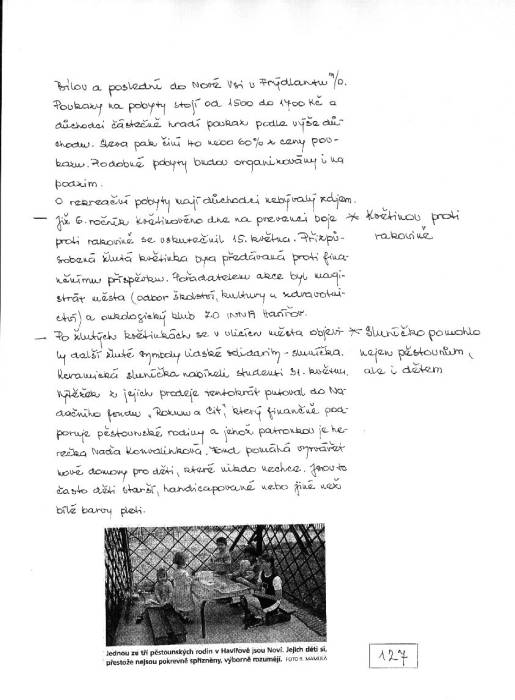 Bílov a poslední do Nové Vsi u Frýdlantu n/O.
Poukazy na pobyty stojí od 1500 do 1700 Kč a
důchodci částečně hradí poukaz podle výše dů-
chodu. Sleva pak činí 40 nebo 60% z ceny pou-
kazu. Podobné pobyty budou organizovány i na
podzim.
O rekreační pobyty mají důchodci nebývalý zájem.
— Již 6. ročník květinového dne na prevenci boje
proti rakovině se uskutečnil 15. května. Přizpů-
sobená žlutá květinka byla předávaná proti fina-
nčnímu příspěvku. Pořadatelem akce byl magi-
strát města (odbor školství, kultury a zdravotni-
ctví) a onkologický klub ZO Havířov.
* Květinou proti
rakovině
— Po žlutých květinkách se v ulicích města objevi-
ly další žluté symboly lidské solidarity - sluníčka.
Keramická sluníčka nabízeli studenti 31. května.
Výtěžek z jejich prodeje tentokrát putoval do Na-
dačního fondu „Rozum a Cit", který finančně pod-
poruje pěstounské rodiny a jehož patronkou je he-
rečka Naďa Konvalinková. Fond pomáhá vytvářet
nové domovy pro děti, které nikdo nechce. Jsou to
často děti starší, handicapované nebo jiné než
bílé barvy pleti.
* Sluníčko pomohlo
nejen pěstounům,
ale i dětem
Jednou ze tří pěstounských rodin v Havířově jsou Noví. Jejich děti si,
přestože nejsou pokrevně spřízněny, výborně rozumějí. FOTO R. MAMULA
127